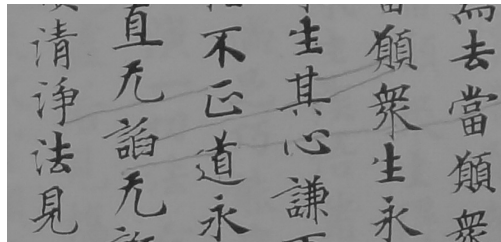 為去當願衆
當願衆生永
生其心謙
不正道永
直无諂无
請諍法見